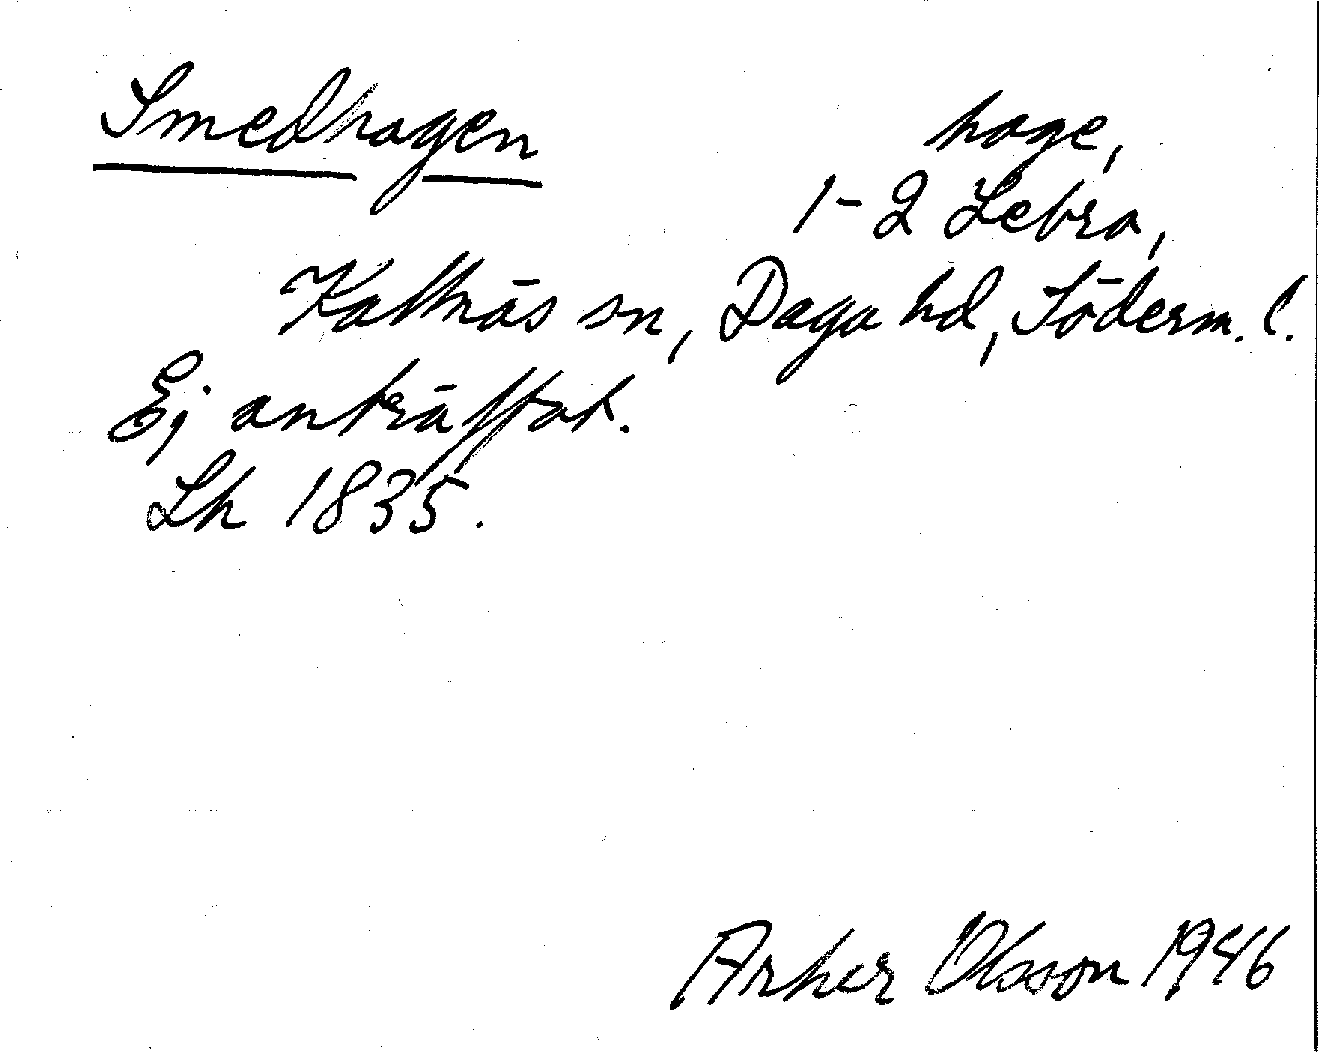 Smedhagen
hage,
1-2 Lebro,
Kattnäs sn, Daga hd, Söderm. l.
Ej anträffat.
Lh 1835.
Arker Olsson 1946